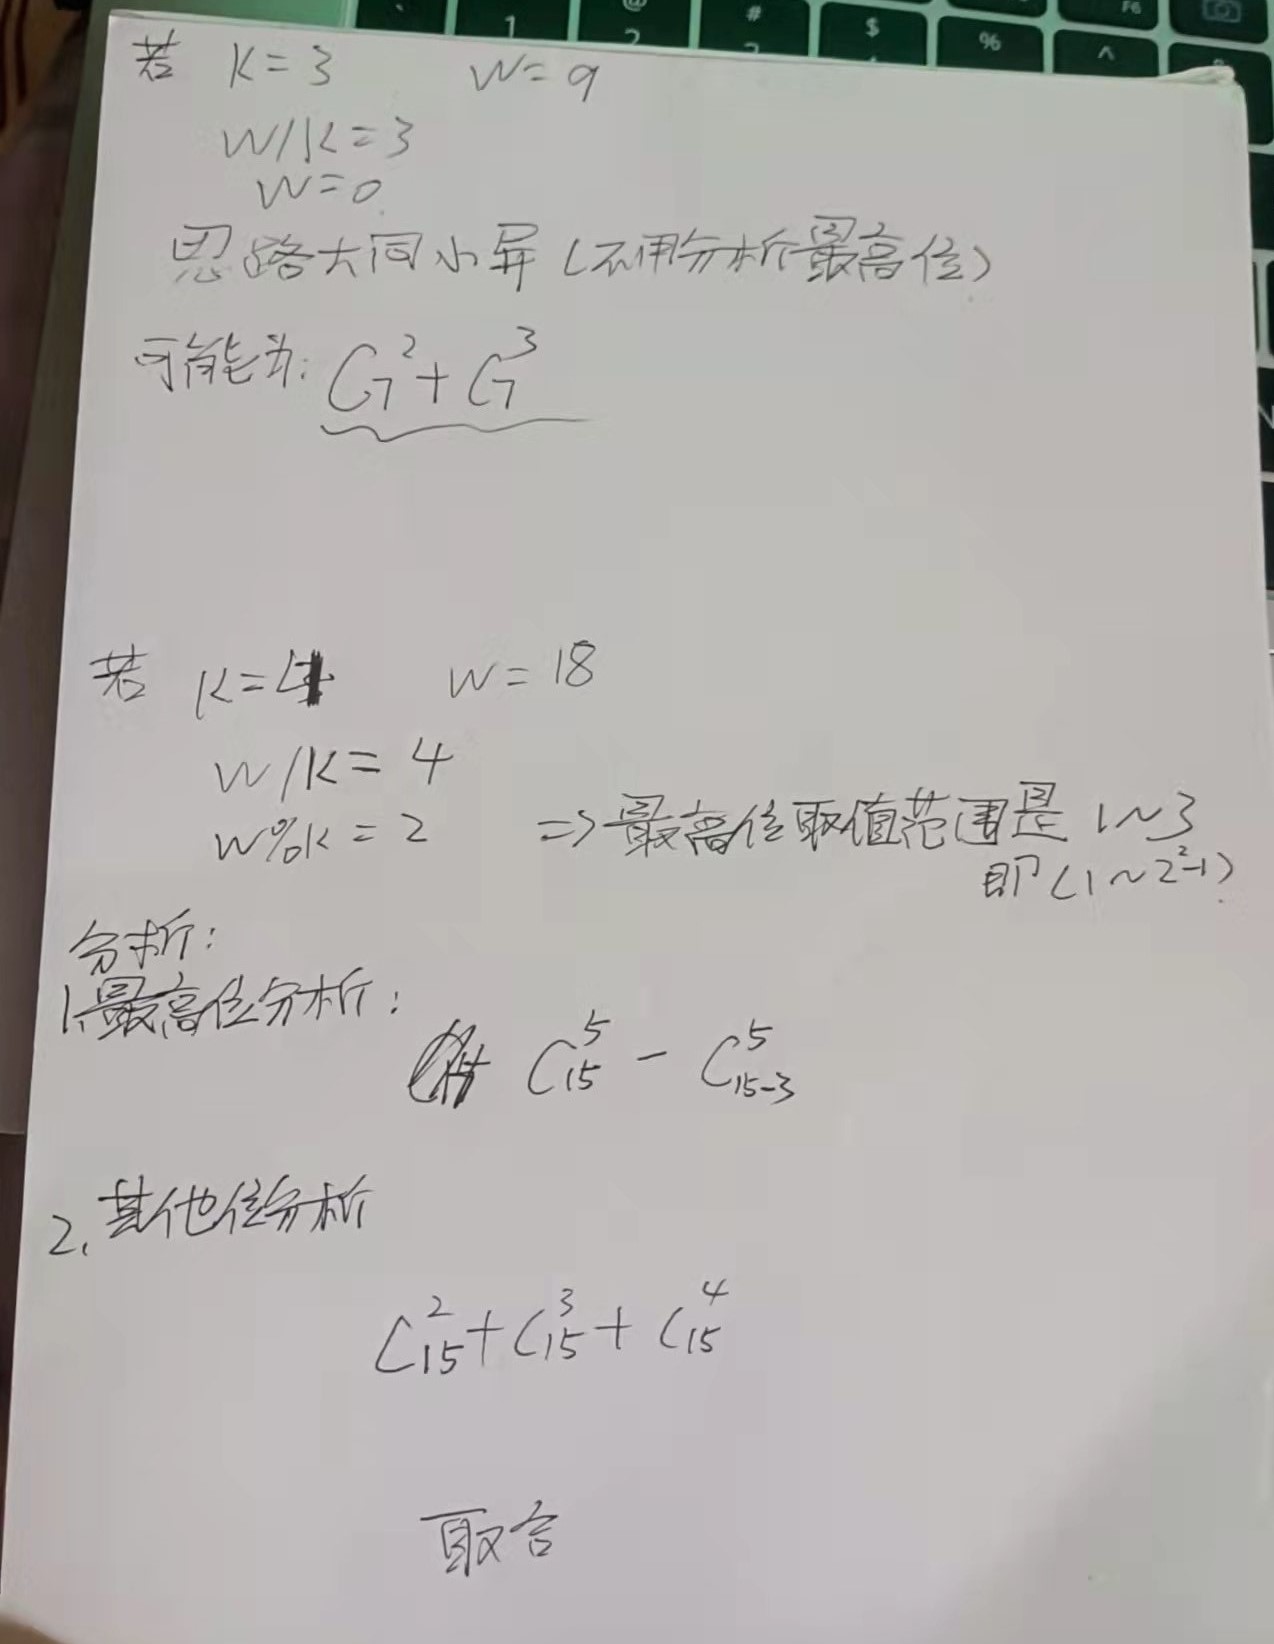 ` 1 @ 2 # $ % ^ F6
若 K=3 W=9
W/K=3
W=0
思路大同小异(不用分析最高位)
可能为: C₇²+C₇³
若 K=4 W=18
W/K=4
W%K=2 ⇒最高位取值范围是1~3
即(1~2²-1)
分析:
1.最高位分析:
C₁₅⁵ - C₁₅₋₃⁵
2.其他位分析
C₁₅²+C₁₅³+C₁₅⁴
取合